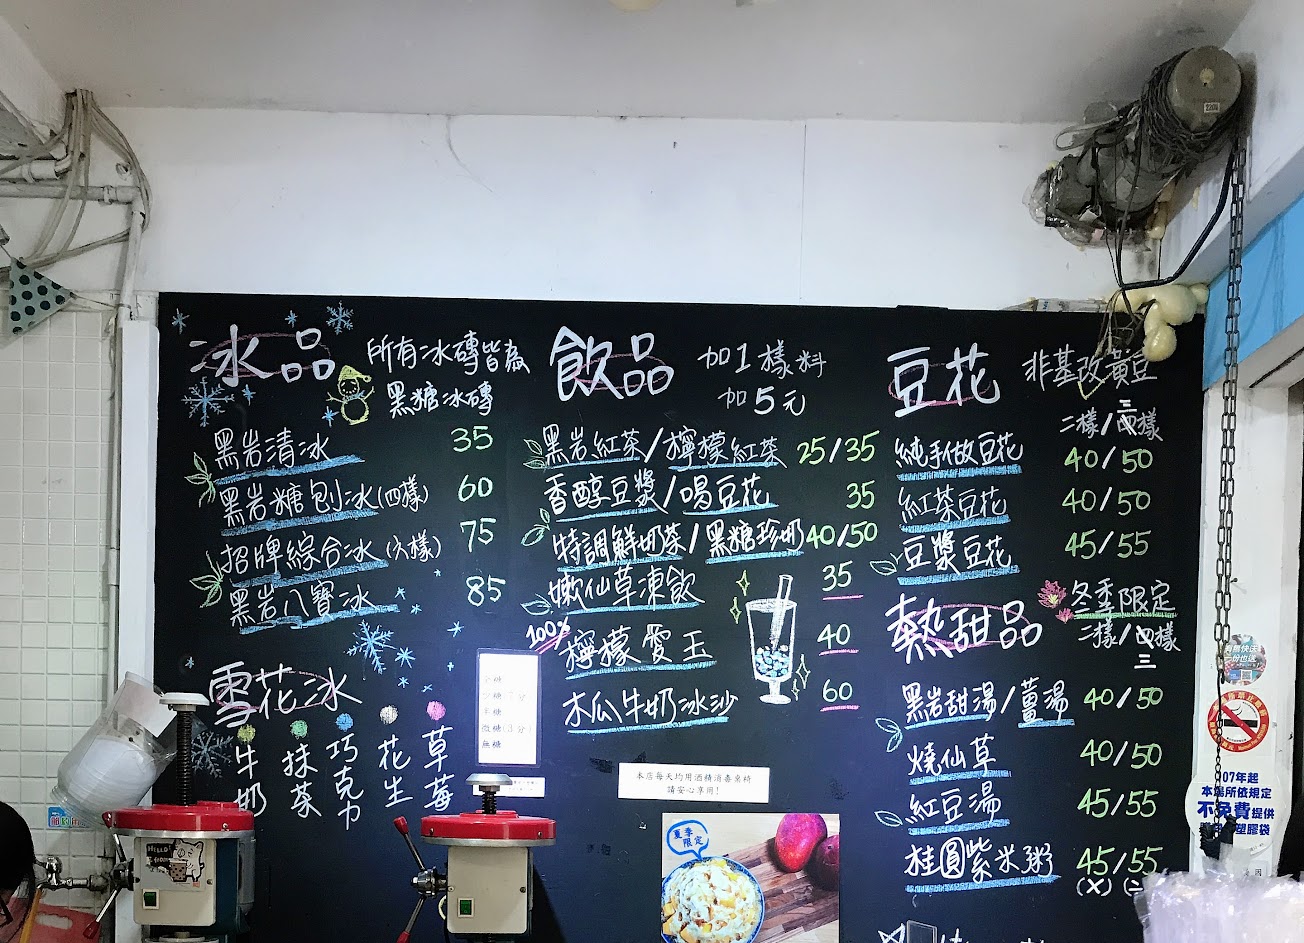 冰品
所有冰磚皆為
黑糖冰磚
黑岩清冰 35
黑岩糖刨冰(四樣) 60
招牌綜合冰(六樣) 75
黑岩八寶冰 85
雪花冰
牛奶
抹茶
巧克力
花生
草莓
飲品
加1樣料
加5元
黑岩紅茶/檸檬紅茶 25/35
香醇豆漿/喝豆花 35
特調鮮奶茶/黑糖珍奶 40/50
嫩仙草凍飲 35
100%
檸檬愛玉 40
木瓜牛奶冰沙 60
半糖
微糖(3分)
無糖
本店每天均用酒精消毒桌椅
請安心享用!
夏季
限定
豆花
非基改黃豆
三
二樣/四樣
純手做豆花 40/50
紅茶豆花 40/50
豆漿豆花 45/55
熱甜品
冬季限定
二樣/四樣
三
黑岩甜湯/薑湯 40/50
燒仙草 40/50
紅豆湯 45/55
桂圓紫米粥 45/55
(X)
HELLO!
07年起
本場所依規定
不免費提供
塑膠袋